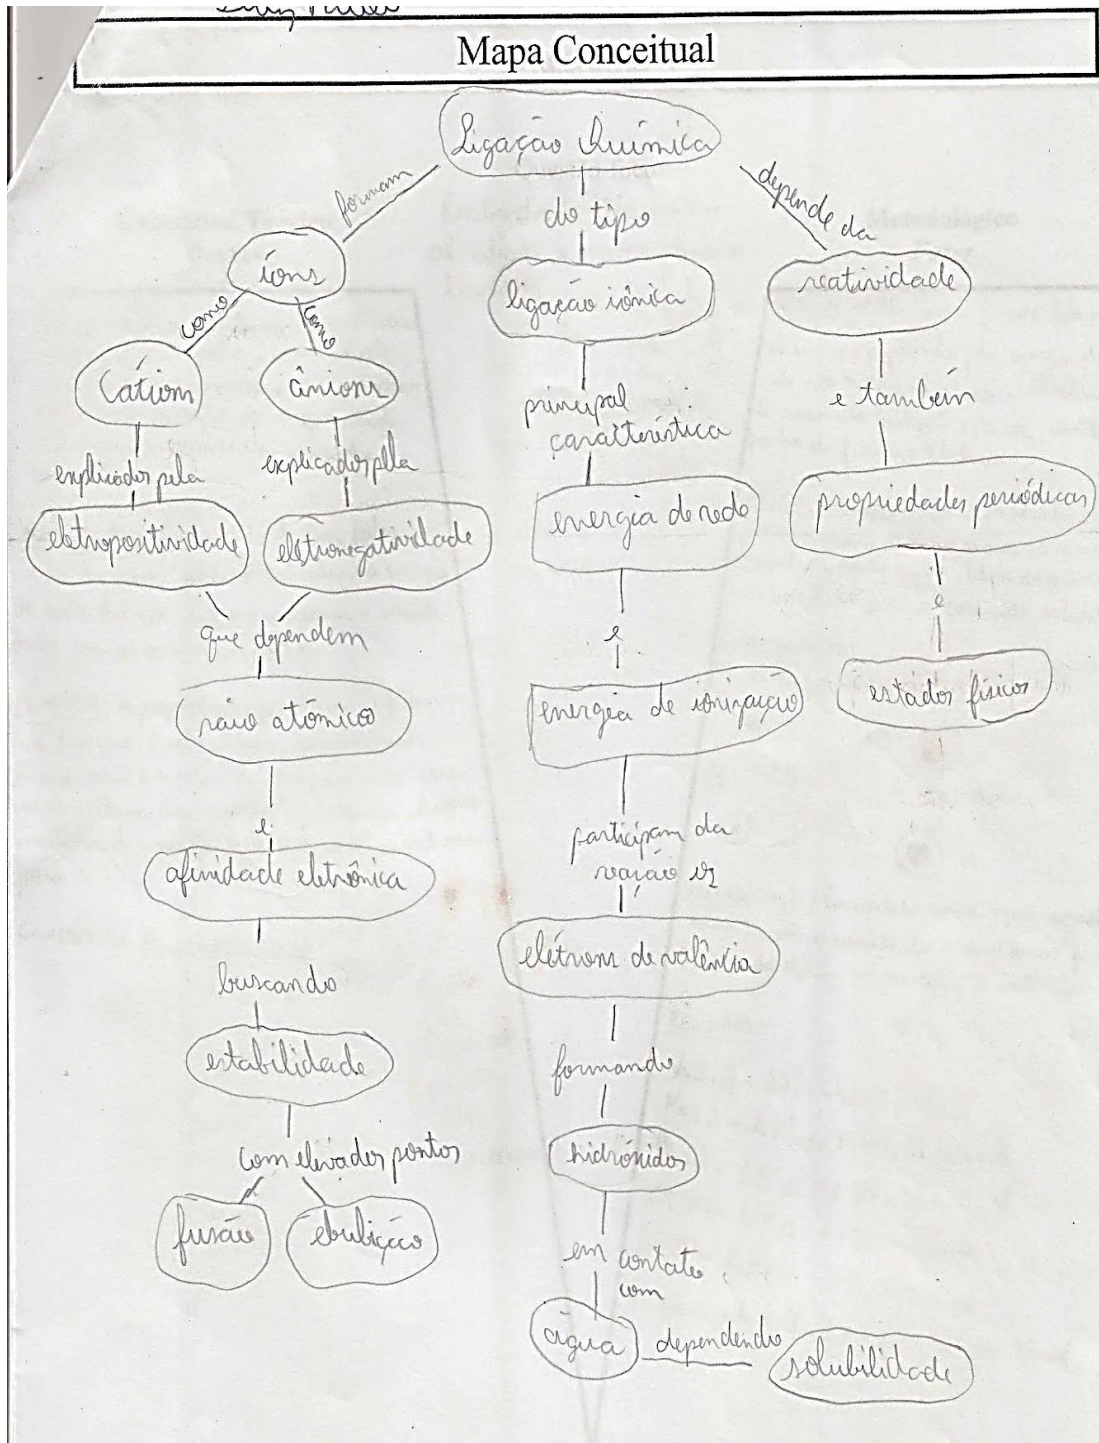 Mapa Conceitual
Ligação Química
formam
do tipo
depende da
íons
ligação iônica
reatividade
como
como
Cátions
ânions
principal
característica
e também
explicados pela
explicados pela
eletropositividade
eletronegatividade
energia de rede
propriedades periódicas
que dependem
e
e
raio atômico
energia de ionização
estados físicos
e
participam da
reação os
afinidade eletrônica
elétrons de valência
buscando
formando
estabilidade
hidróxidos
com elevados pontos
fusão
ebulição
em contato
com
água
dependendo
solubilidade